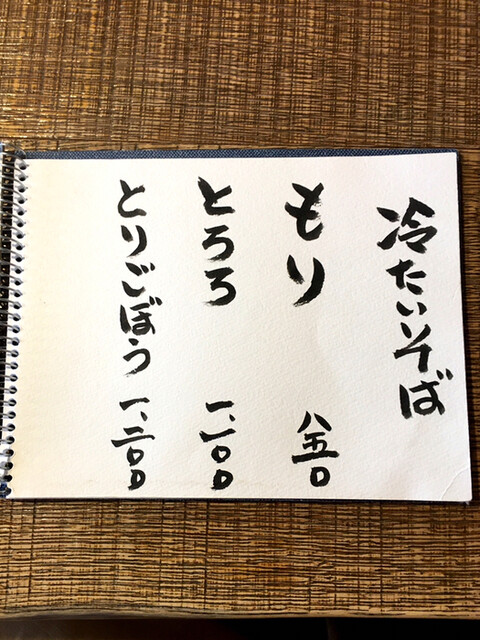 冷たいそば
もり 八五〇
とろろ 一、一〇〇
とりごぼう 一、三〇〇